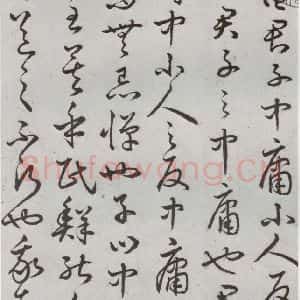 曰君子中庸小人反
君子之中庸也君
時中小人之反中庸
無忌憚也子曰中
至矣乎民鮮能
道之不行也我
Shufawang.cn